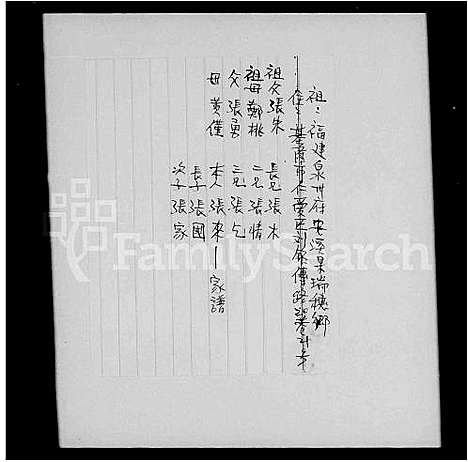 祖：福建泉州府安溪県瑞穂鄉
住：基隆市仁愛区劉銘傳路
祖父 張朱
祖母 鄭桃
父 張勇
母 黃僅
長兄 張木
二兄 張情
三兄 張乞
本人 張來 — 家譜
長子 張國
次子 張家
FamilySearch